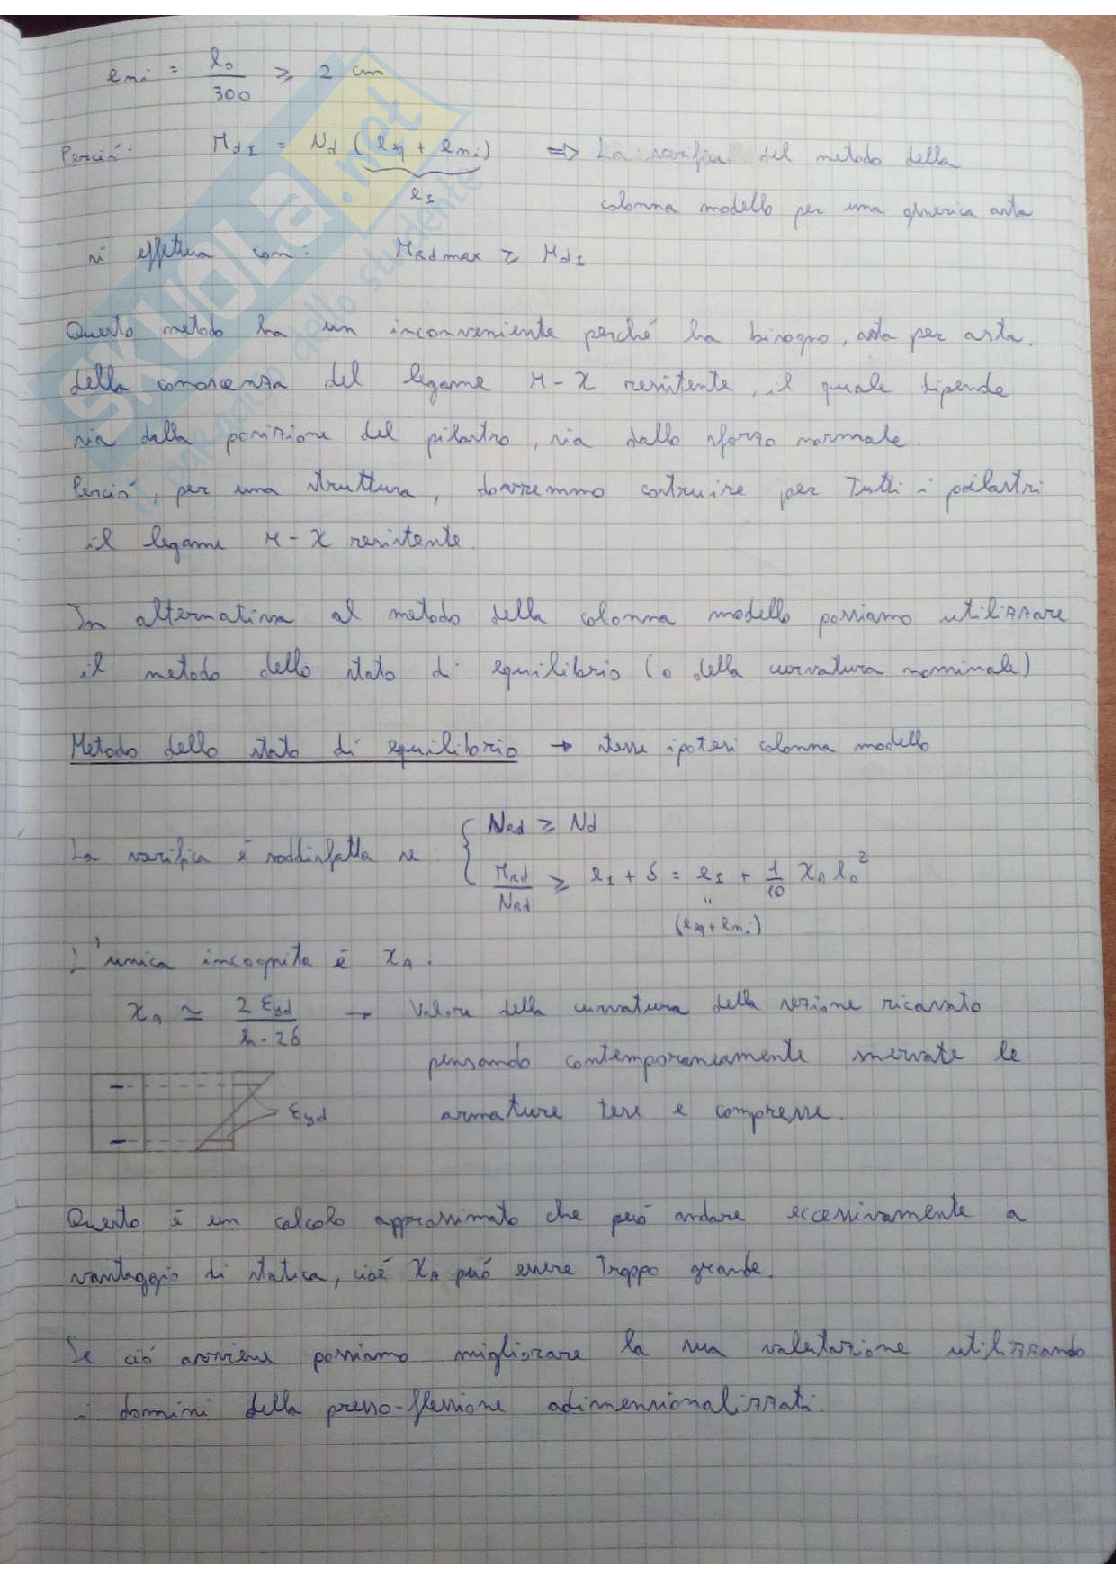 e_mi = l_0/300 ≥ 2 cm
Perciò: M_dI = N_d (e_eq + e_mi) ⇒ La verifica del metodo della
e_I
colonna modello per una generica asta
si effettua con: M_Rdmax ≥ M_dI
Questo metodo ha un inconveniente perché ha bisogno, asta per asta,
della conoscenza del legame M-χ resistente, il quale dipende
sia dalla posizione del pilastro, sia dallo sforzo normale
Perciò, per una struttura, dovremmo costruire per Tutti i pilastri
il legame M-χ resistente.
In alternativa al metodo della colonna modello possiamo utilizzare
il metodo dello stato di equilibrio (o della curvatura nominale)
Metodo dello stato di equilibrio → stesse ipotesi colonna modello
La verifica è soddisfatta se { N_Rd ≥ N_d
M_Rd/N_Rd ≥ e_I + δ = e_I + 1/10 χ_A l_0^2
"
(e_eq + e_mi)
L'unica incognita è χ_A.
χ_A ≃ 2 ε_yd / h-2δ → Valore della curvatura della sezione ricavato
pensando contemporaneamente snervate le
ε_yd armature tese e compresse.
Questo è un calcolo approssimato che può andare eccessivamente a
vantaggio di statica, cioè χ_A può essere Troppo grande.
Se ciò avviene possiamo migliorare la sua valutazione utilizzando
i domini della presso-flessione adimensionalizzati.
SKUOLA.net